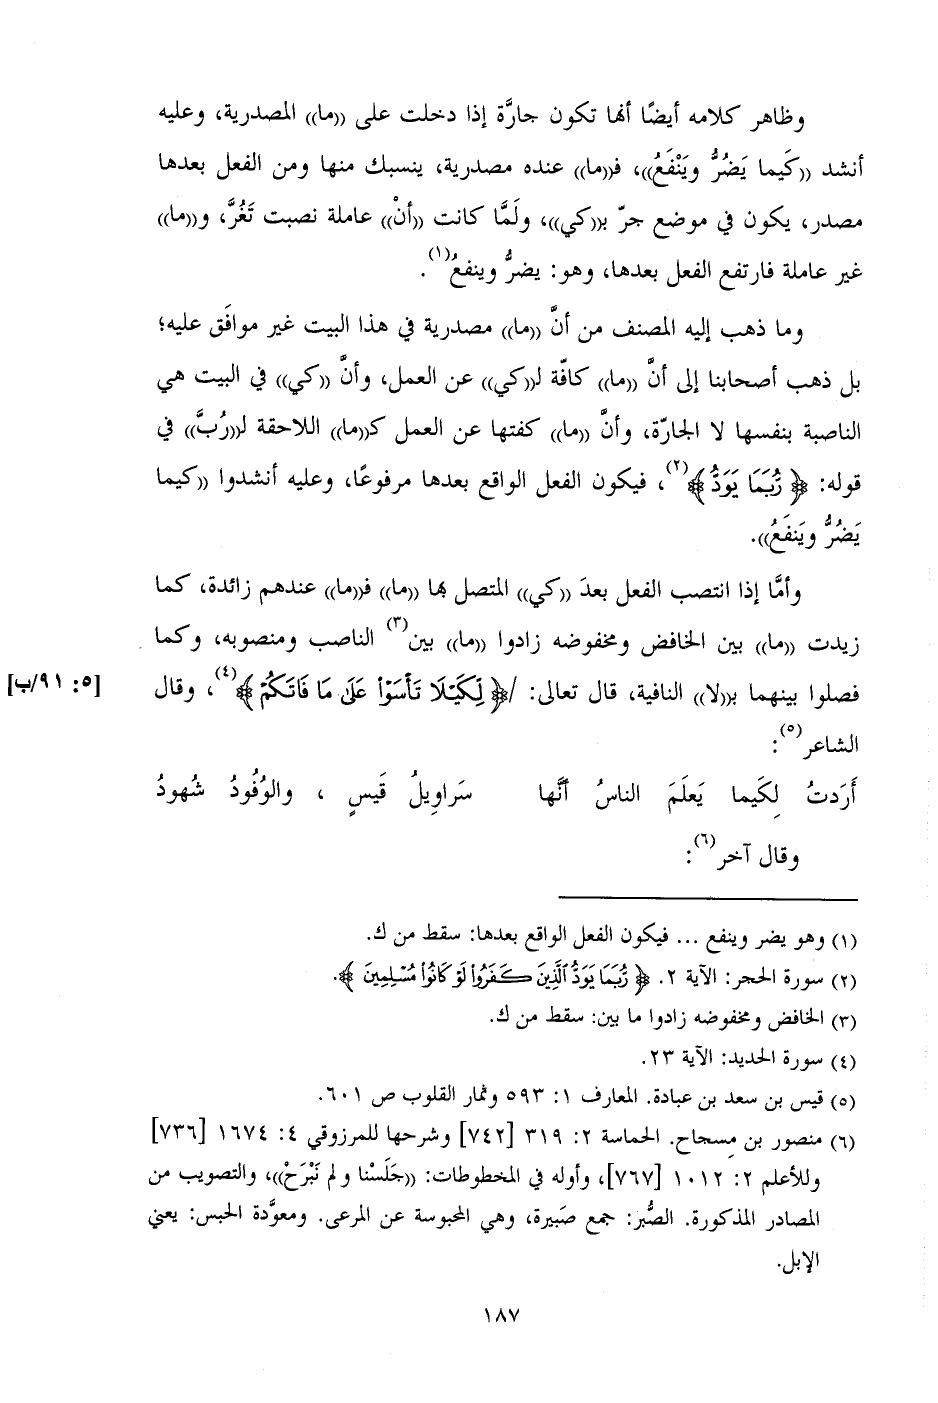 وظاهر كلامه أيضًا أنها تكون جارَّة إذا دخلت على ((ما)) المصدرية، وعليه
أنشد ((كَيما يَضُرُّ ويَنْفَعُ))، فـ((ما)) عنده مصدرية، ينسبك منها ومن الفعل بعدها
مصدر، يكون في موضع جرّ بـ((كي))، ولَمَّا كانت ((أنْ)) عاملة نصبت تَغُرَّ، و((ما))
غير عاملة فارتفع الفعل بعدها، وهو: يضرُّ وينفعُ(١).
وما ذهب إليه المصنف من أنَّ ((ما)) مصدرية في هذا البيت غير موافَق عليه؛
بل ذهب أصحابنا إلى أنَّ ((ما)) كافّة لـ((كي)) عن العمل، وأنَّ ((كي)) في البيت هي
الناصبة بنفسها لا الجارّة، وأنَّ ((ما)) كفتها عن العمل كـ((ما)) اللاحقة لـ((رُبَّ)) في
قوله: ﴿ رُّبَمَا يَوَدُّ ﴾(٢)، فيكون الفعل الواقع بعدها مرفوعًا، وعليه أنشدوا ((كيما
يَضُرُّ ويَنفَعُ)).
وأمَّا إذا انتصب الفعل بعدَ ((كي)) المتصل بها ((ما)) فـ((ما)) عندهم زائدة، كما
زيدت ((ما)) بين الخافض ومخفوضه زادوا ((ما)) بين(٣) الناصب ومنصوبه، وكما
فصلوا بينهما بـ((لا)) النافية، قال تعالى: /﴿ لِكَيْلَا تَأْسَوْا عَلَىٰ مَا فَاتَكُمْ ﴾(٤)، وقال [٥: ٩١/ب]
الشاعر(٥):
أَرَدتُ لِكَيما يَعلَمَ الناسُ أنَّها سَراوِيلُ قَيسٍ ، والوُفُودُ شُهودُ
وقال آخر(٦):
(١) وهو يضر وينفع ... فيكون الفعل الواقع بعدها: سقط من ك.
(٢) سورة الحجر: الآية ٢. ﴿ رُّبَمَا يَوَدُّ الَّذِينَ كَفَرُوا لَوْ كَانُوا مُسْلِمِينَ ﴾.
(٣) الخافض ومخفوضه زادوا ما بين: سقط من ك.
(٤) سورة الحديد: الآية ٢٣.
(٥) قيس بن سعد بن عبادة. المعارف ١: ٥٩٣ وثمار القلوب ص ٦٠١.
(٦) منصور بن مِسجاح. الحماسة ٢: ٣١٩ [٧٤٢] وشرحها للمرزوقي ٤: ١٦٧٤ [٧٣٦]
وللأعلم ٢: ١٠١٢ [٧٦٧]، وأوله في المخطوطات: ((جَلَسْنا و لم نَبْرَحْ))، والتصويب من
المصادر المذكورة. الصُّبر: جمع صَبيرة، وهي المحبوسة عن المرعى. ومعوَّدة الحبس: يعني
الإبل.
١٨٧